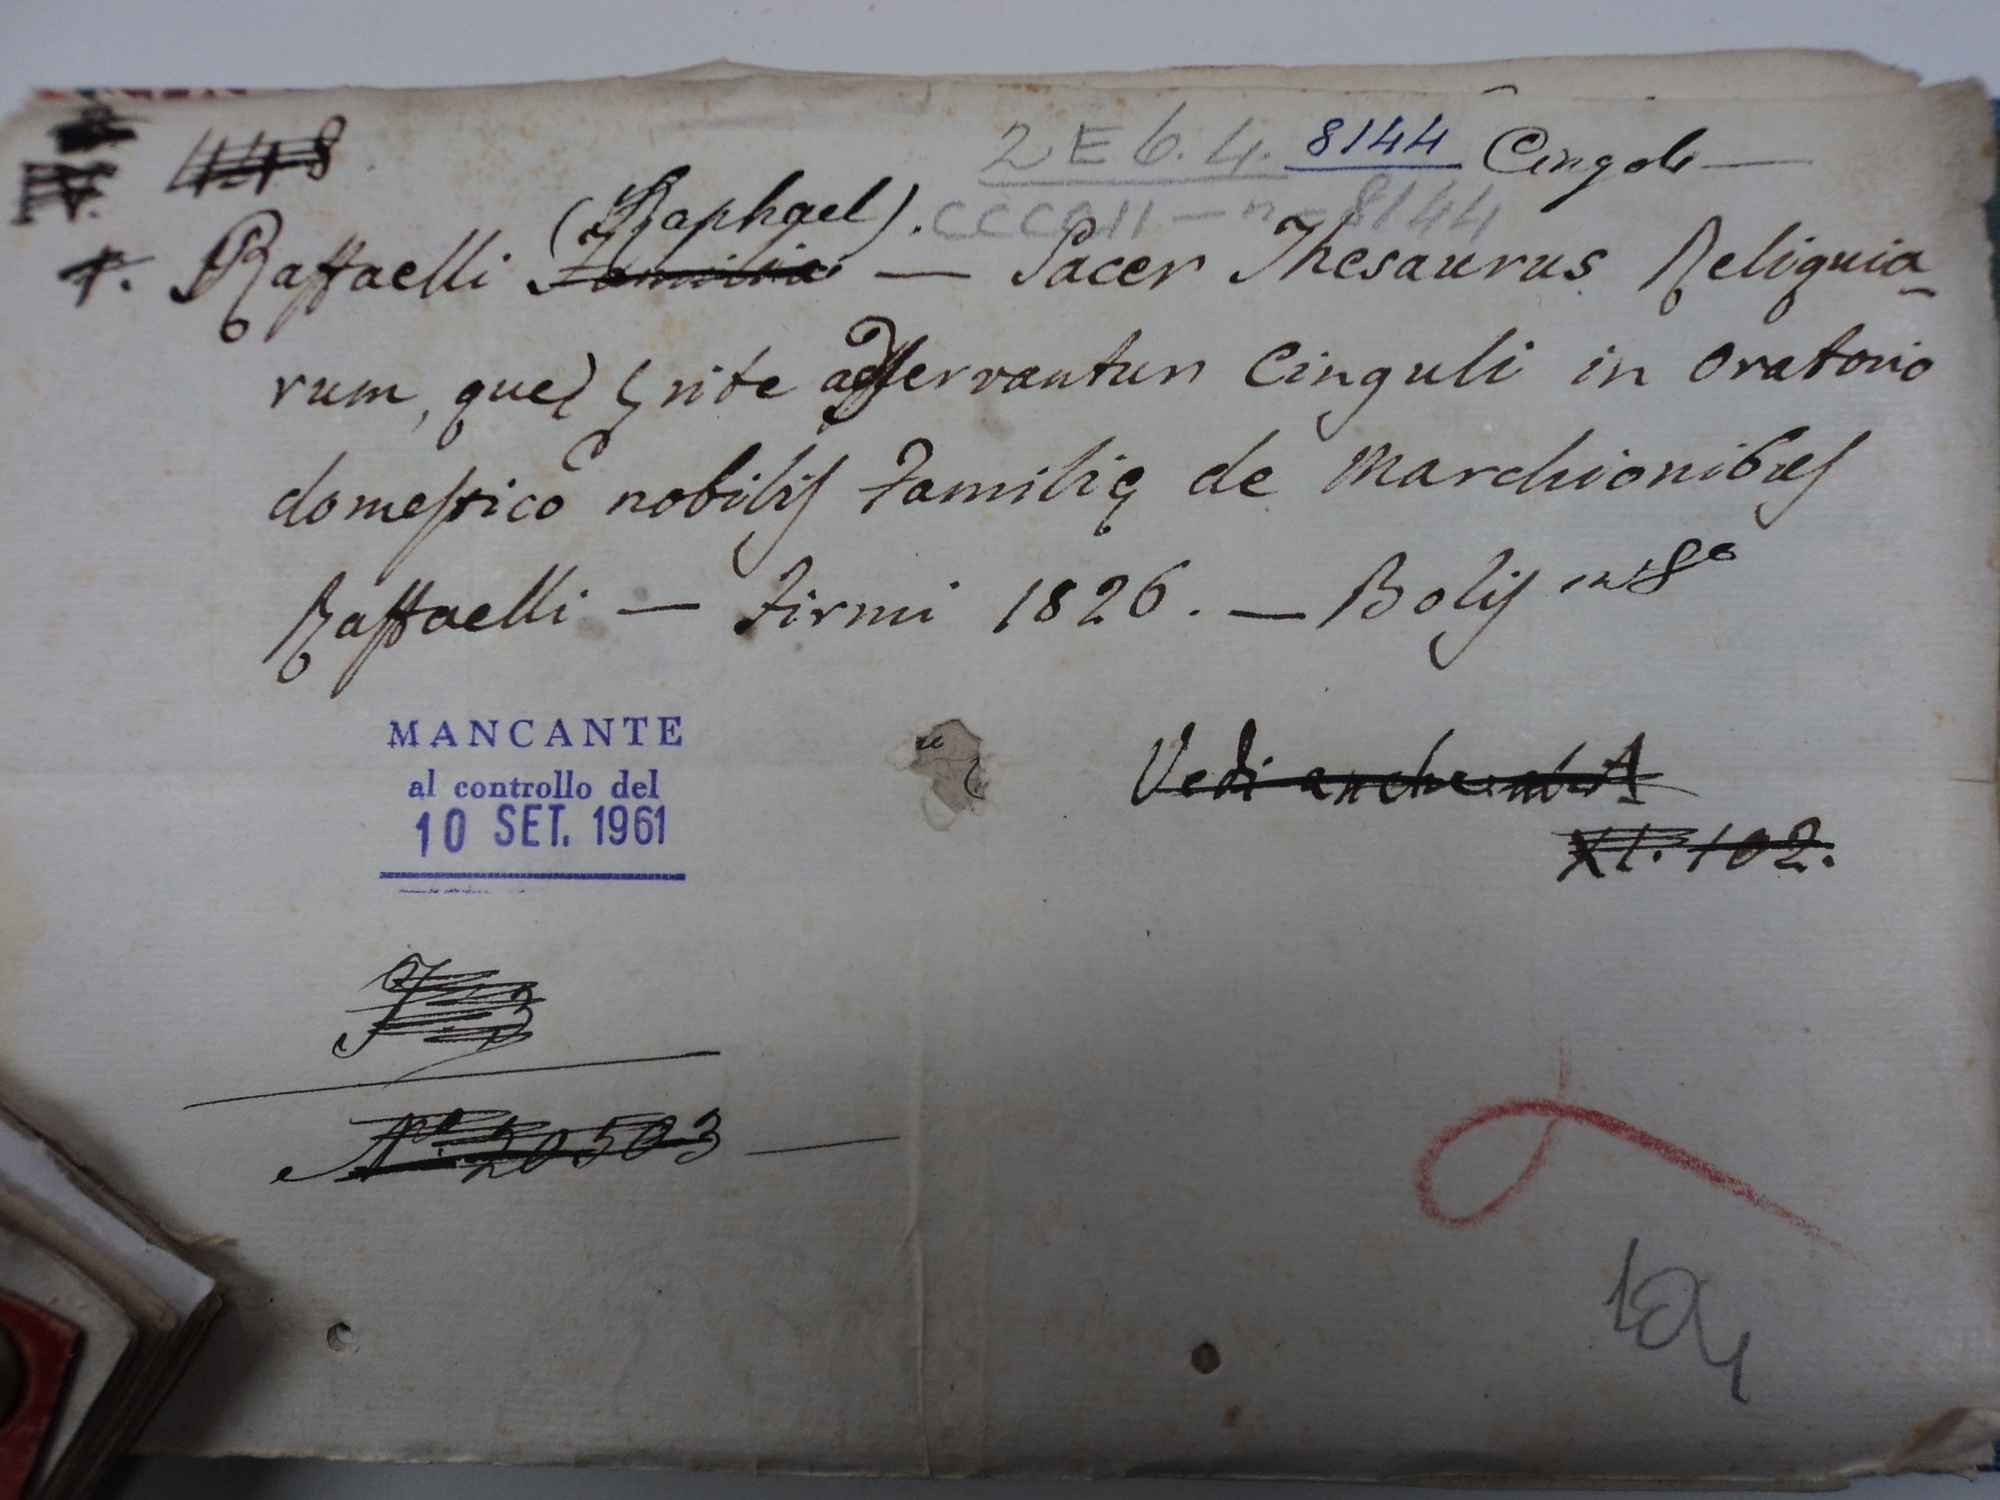 IV. 448
2 E 6. 4. 8144 Cingoli —
(Raphael). CCCCII — n — 8144
Raffaelli Familia — Sacer Thesaurus Reliquia-
rum, quę rite adservantur Cinguli in Oratorio
domestico nobilis Familię de Marchionibus
Raffaelli — Firmi 1826. — Bolis in 8º
MANCANTE
al controllo del
10 SET. 1961
Vedi anche
XI. 102.
Nº 20503 —